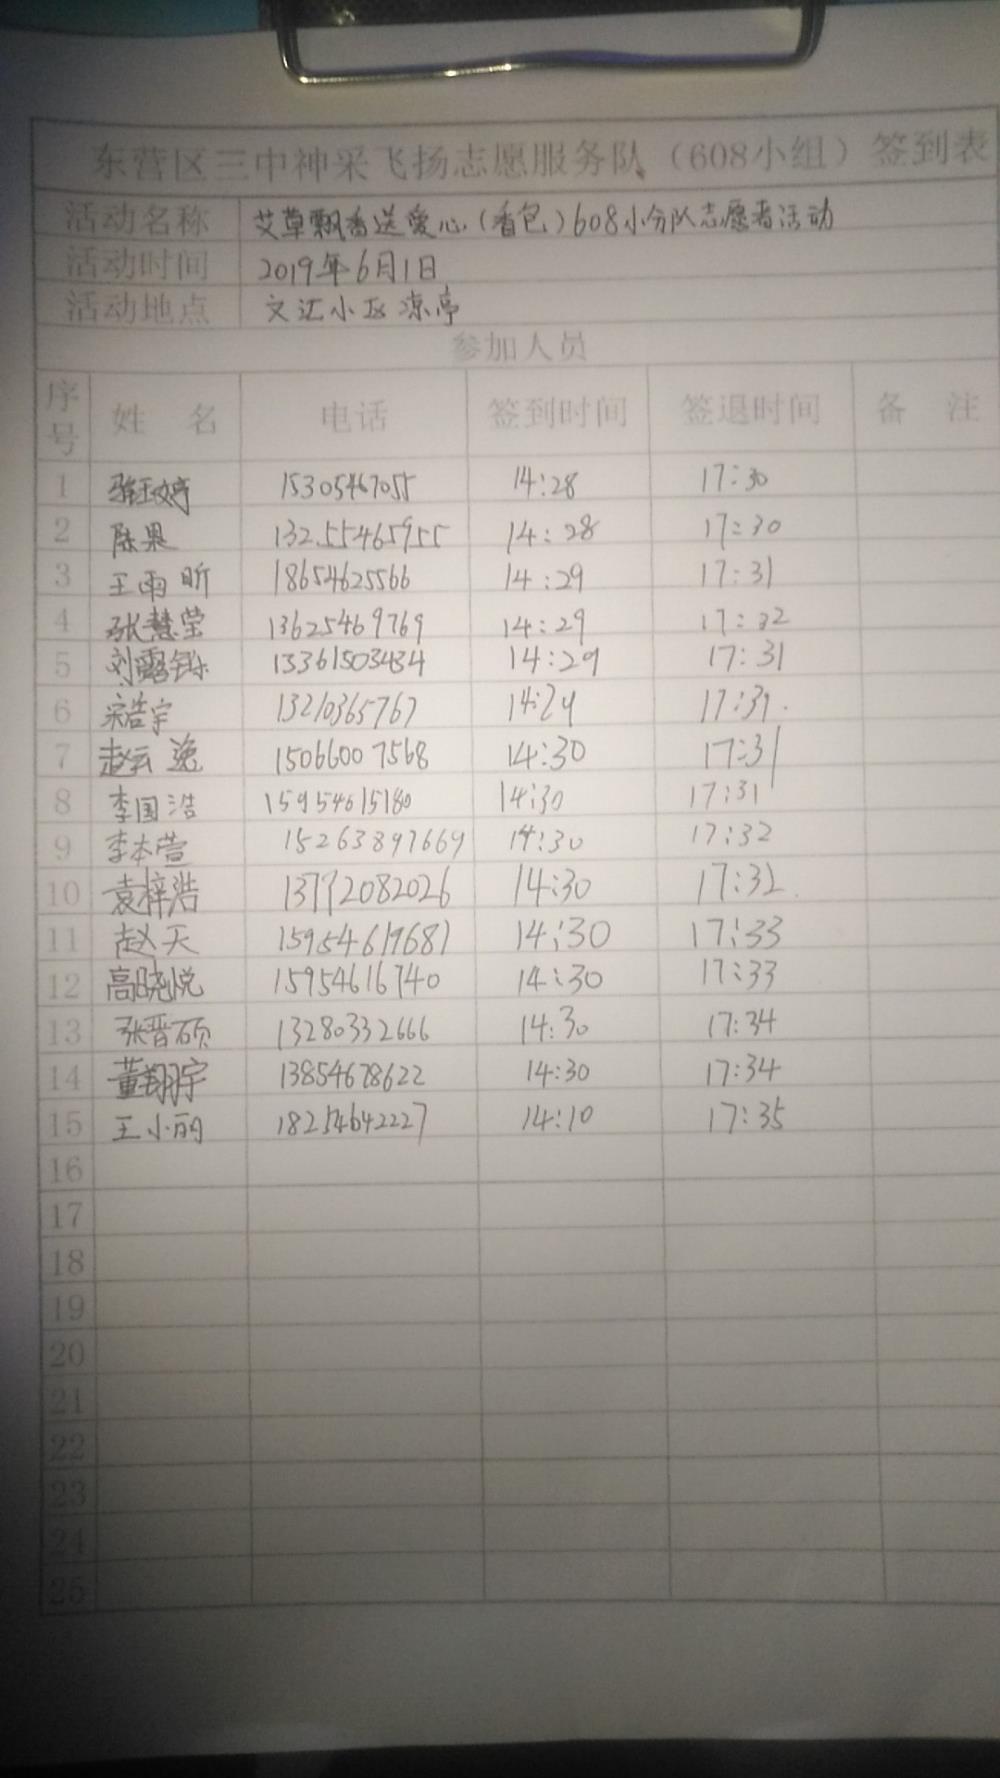 东营区三中神采飞扬志愿服务队（608小组）签到表
活动名称 艾草飘香送爱心（香包）608小分队志愿者活动
活动时间 2019年6月1日
活动地点 文汇小区凉亭
参加人员
序号 姓 名 电话 签到时间 签退时间 备 注
1 15305467055 14:28 17:30
2 陈果 13255465955 14:28 17:30
3 王雨昕 18654625566 14:29 17:31
4 张慧莹 13625469769 14:29 17:32
5 刘露铄 13361503434 14:29 17:31
6 宋浩宇 13210365767 14:29 17:31
7 赵云逸 15066007568 14:30 17:31
8 李国浩 15954615180 14:30 17:31
9 李本萱 15263897669 14:30 17:32
10 袁梓浩 13792082026 14:30 17:32
11 赵天 15954619681 14:30 17:33
12 高晓悦 15954616740 14:30 17:33
13 张晋硕 13280332666 14:30 17:34
14 董翔宇 13854678622 14:30 17:34
15 王小丽 18254642227 14:10 17:35
16
17
18
19
20
21
22
23
24
25